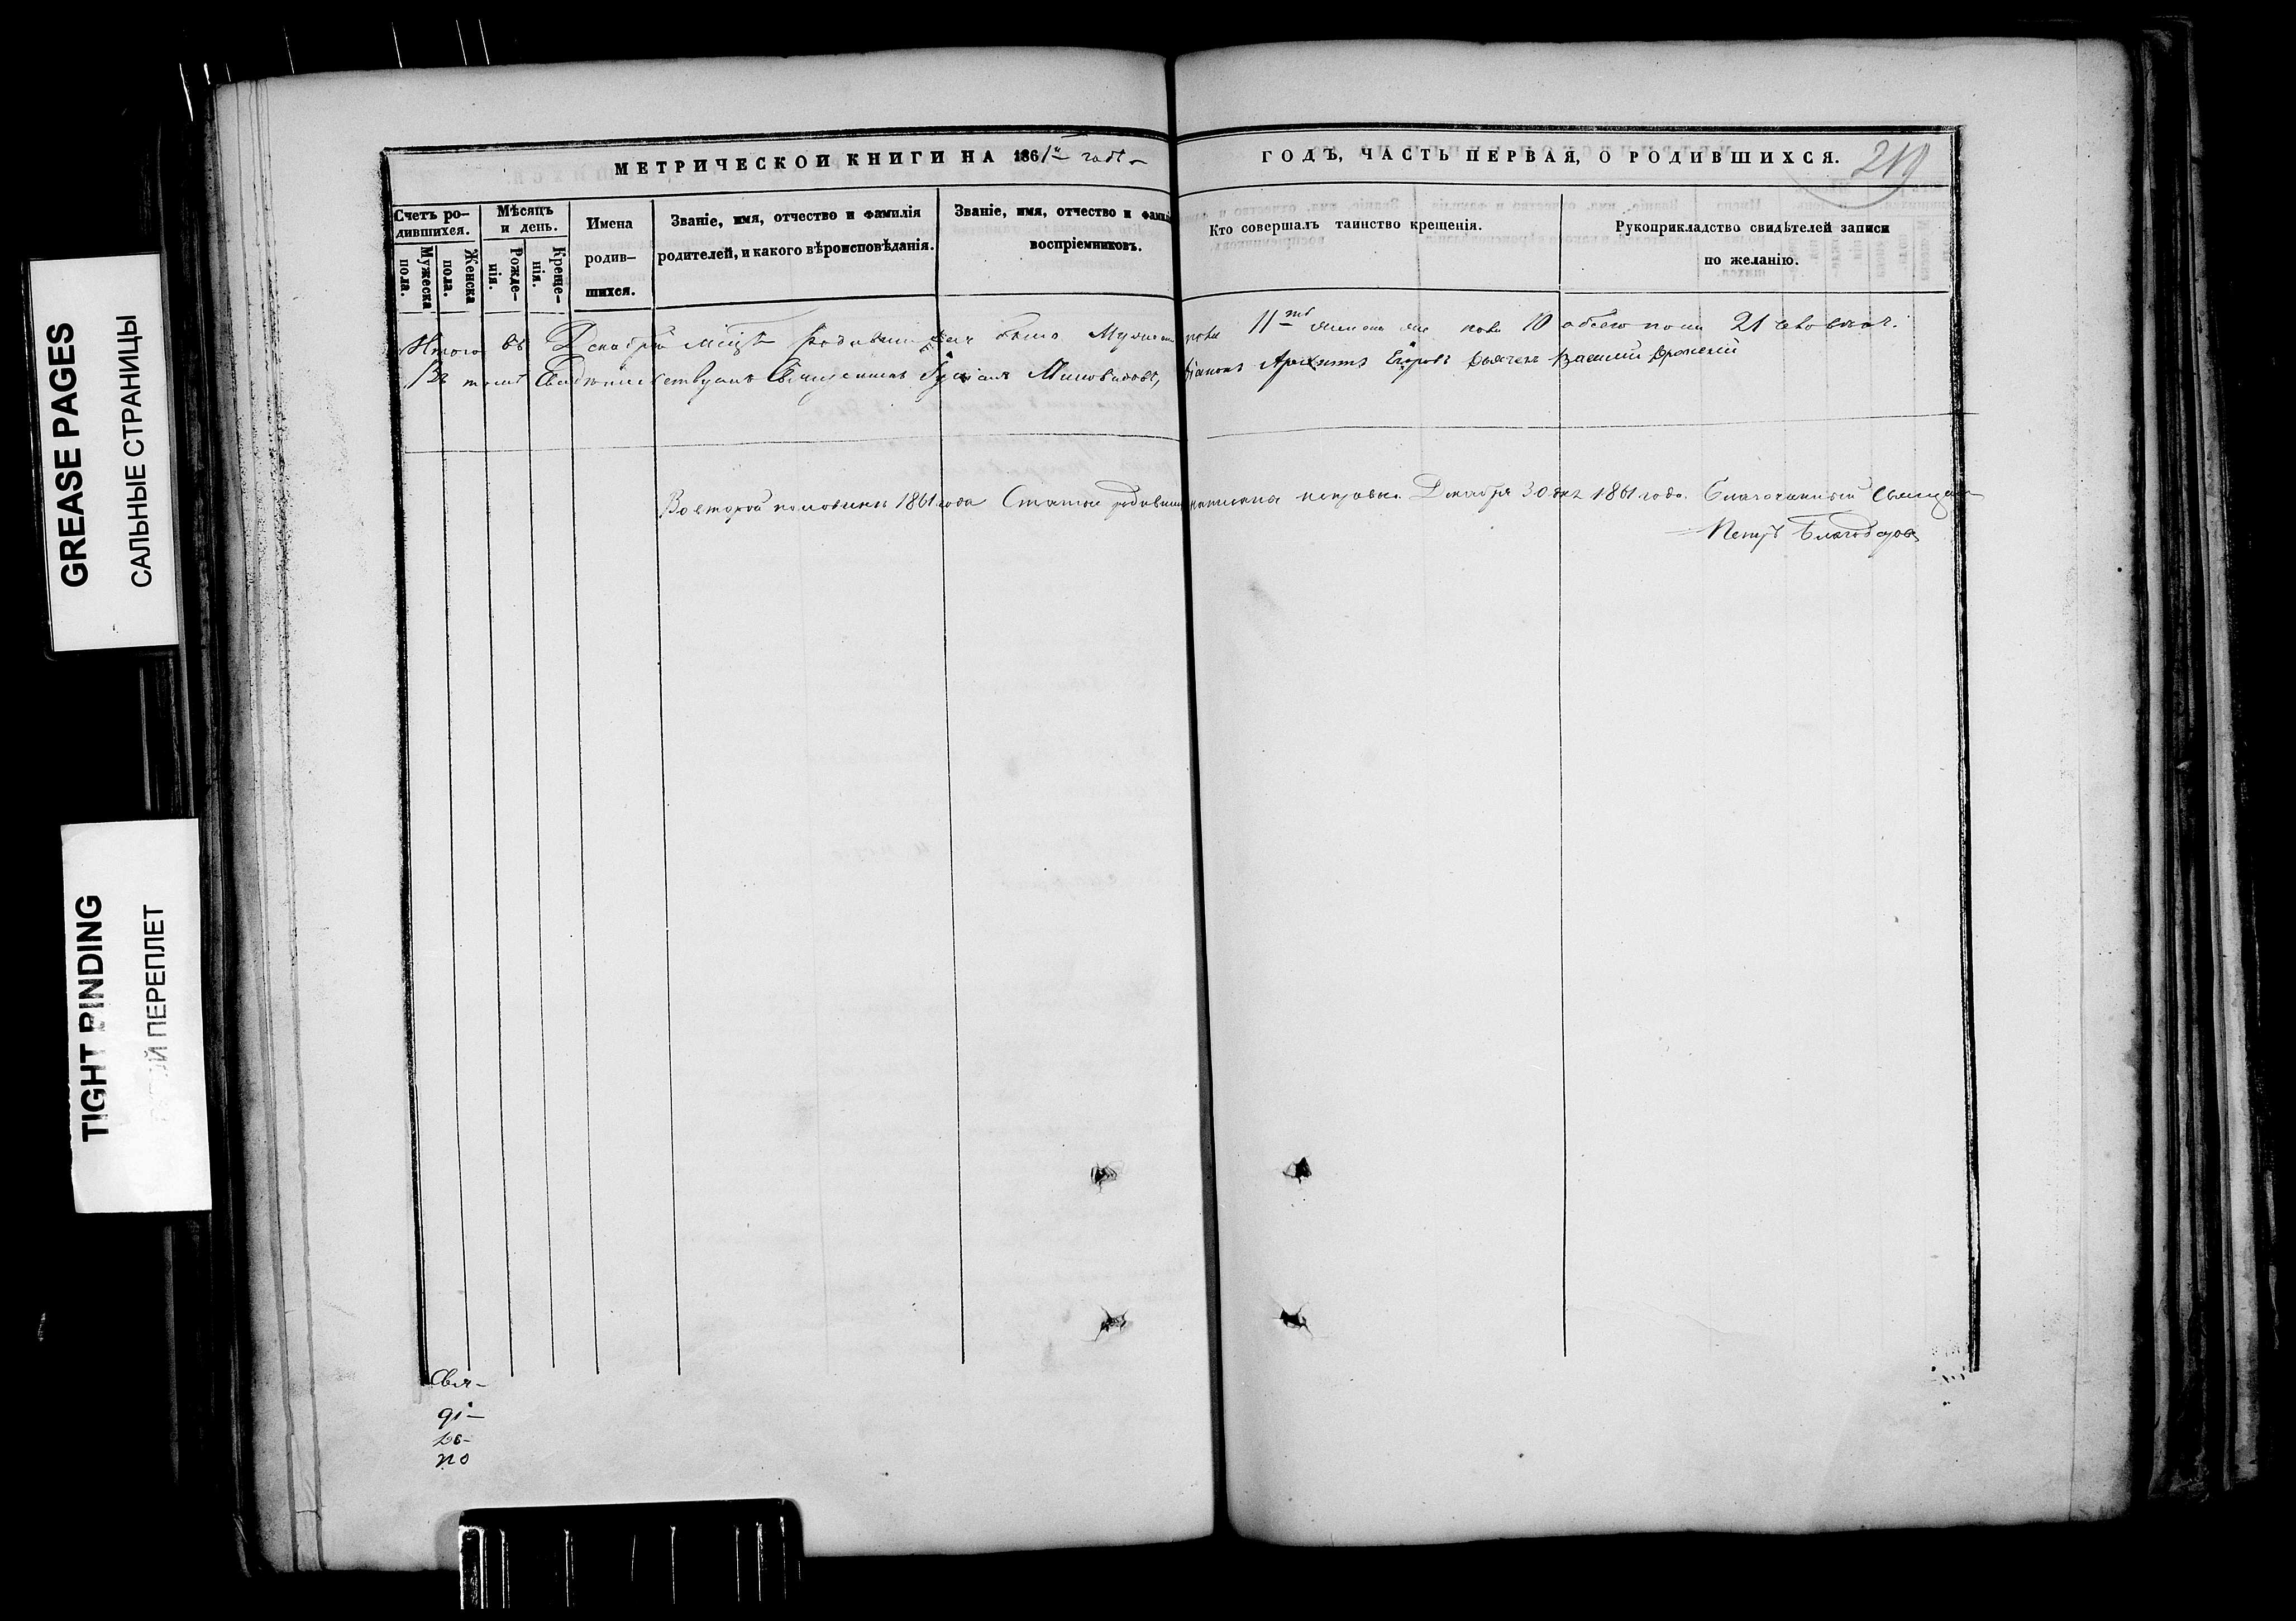 GREASE PAGES
САЛЬНЫЕ СТРАНИЦЫ
TIGHT BINDING
ПЕРЕПЛЕТ
МЕТРИЧЕСКОЙ КНИГИ НА 1861й годъ ГОДЪ, ЧАСТЬ ПЕРВАЯ, О РОДИВШИХСЯ.
219
Счетъ ро-
дившихся.
Мужеска
пола.
Женска
пола.
Мѣсяцъ
и день.
Рожде-
нія.
Креще-
нія.
Имена
родив-
шихся.
Званіе, имя, отчество и фамилія
родителей, и какого вѣроисповѣданія.
Званіе, имя, отчество и фамилія
воспріемниковъ.
Кто совершалъ таинство крещенія.
Рукоприкладство свидѣтелей записи
по желанію.
Итого въ Декабрѣ родившихся было Мужеска пола 11ть женска пола 10 обоего пола 21 человѣкъ.
Въ томъ Свидѣтельствуютъ Священникъ Миловидовъ, Егоровъ дьячекъ Василій
Во второй половинѣ 1861 года Статьи родивш Декабря 30 дня 1861 года. Благочинный Священ
Петръ
Свя-